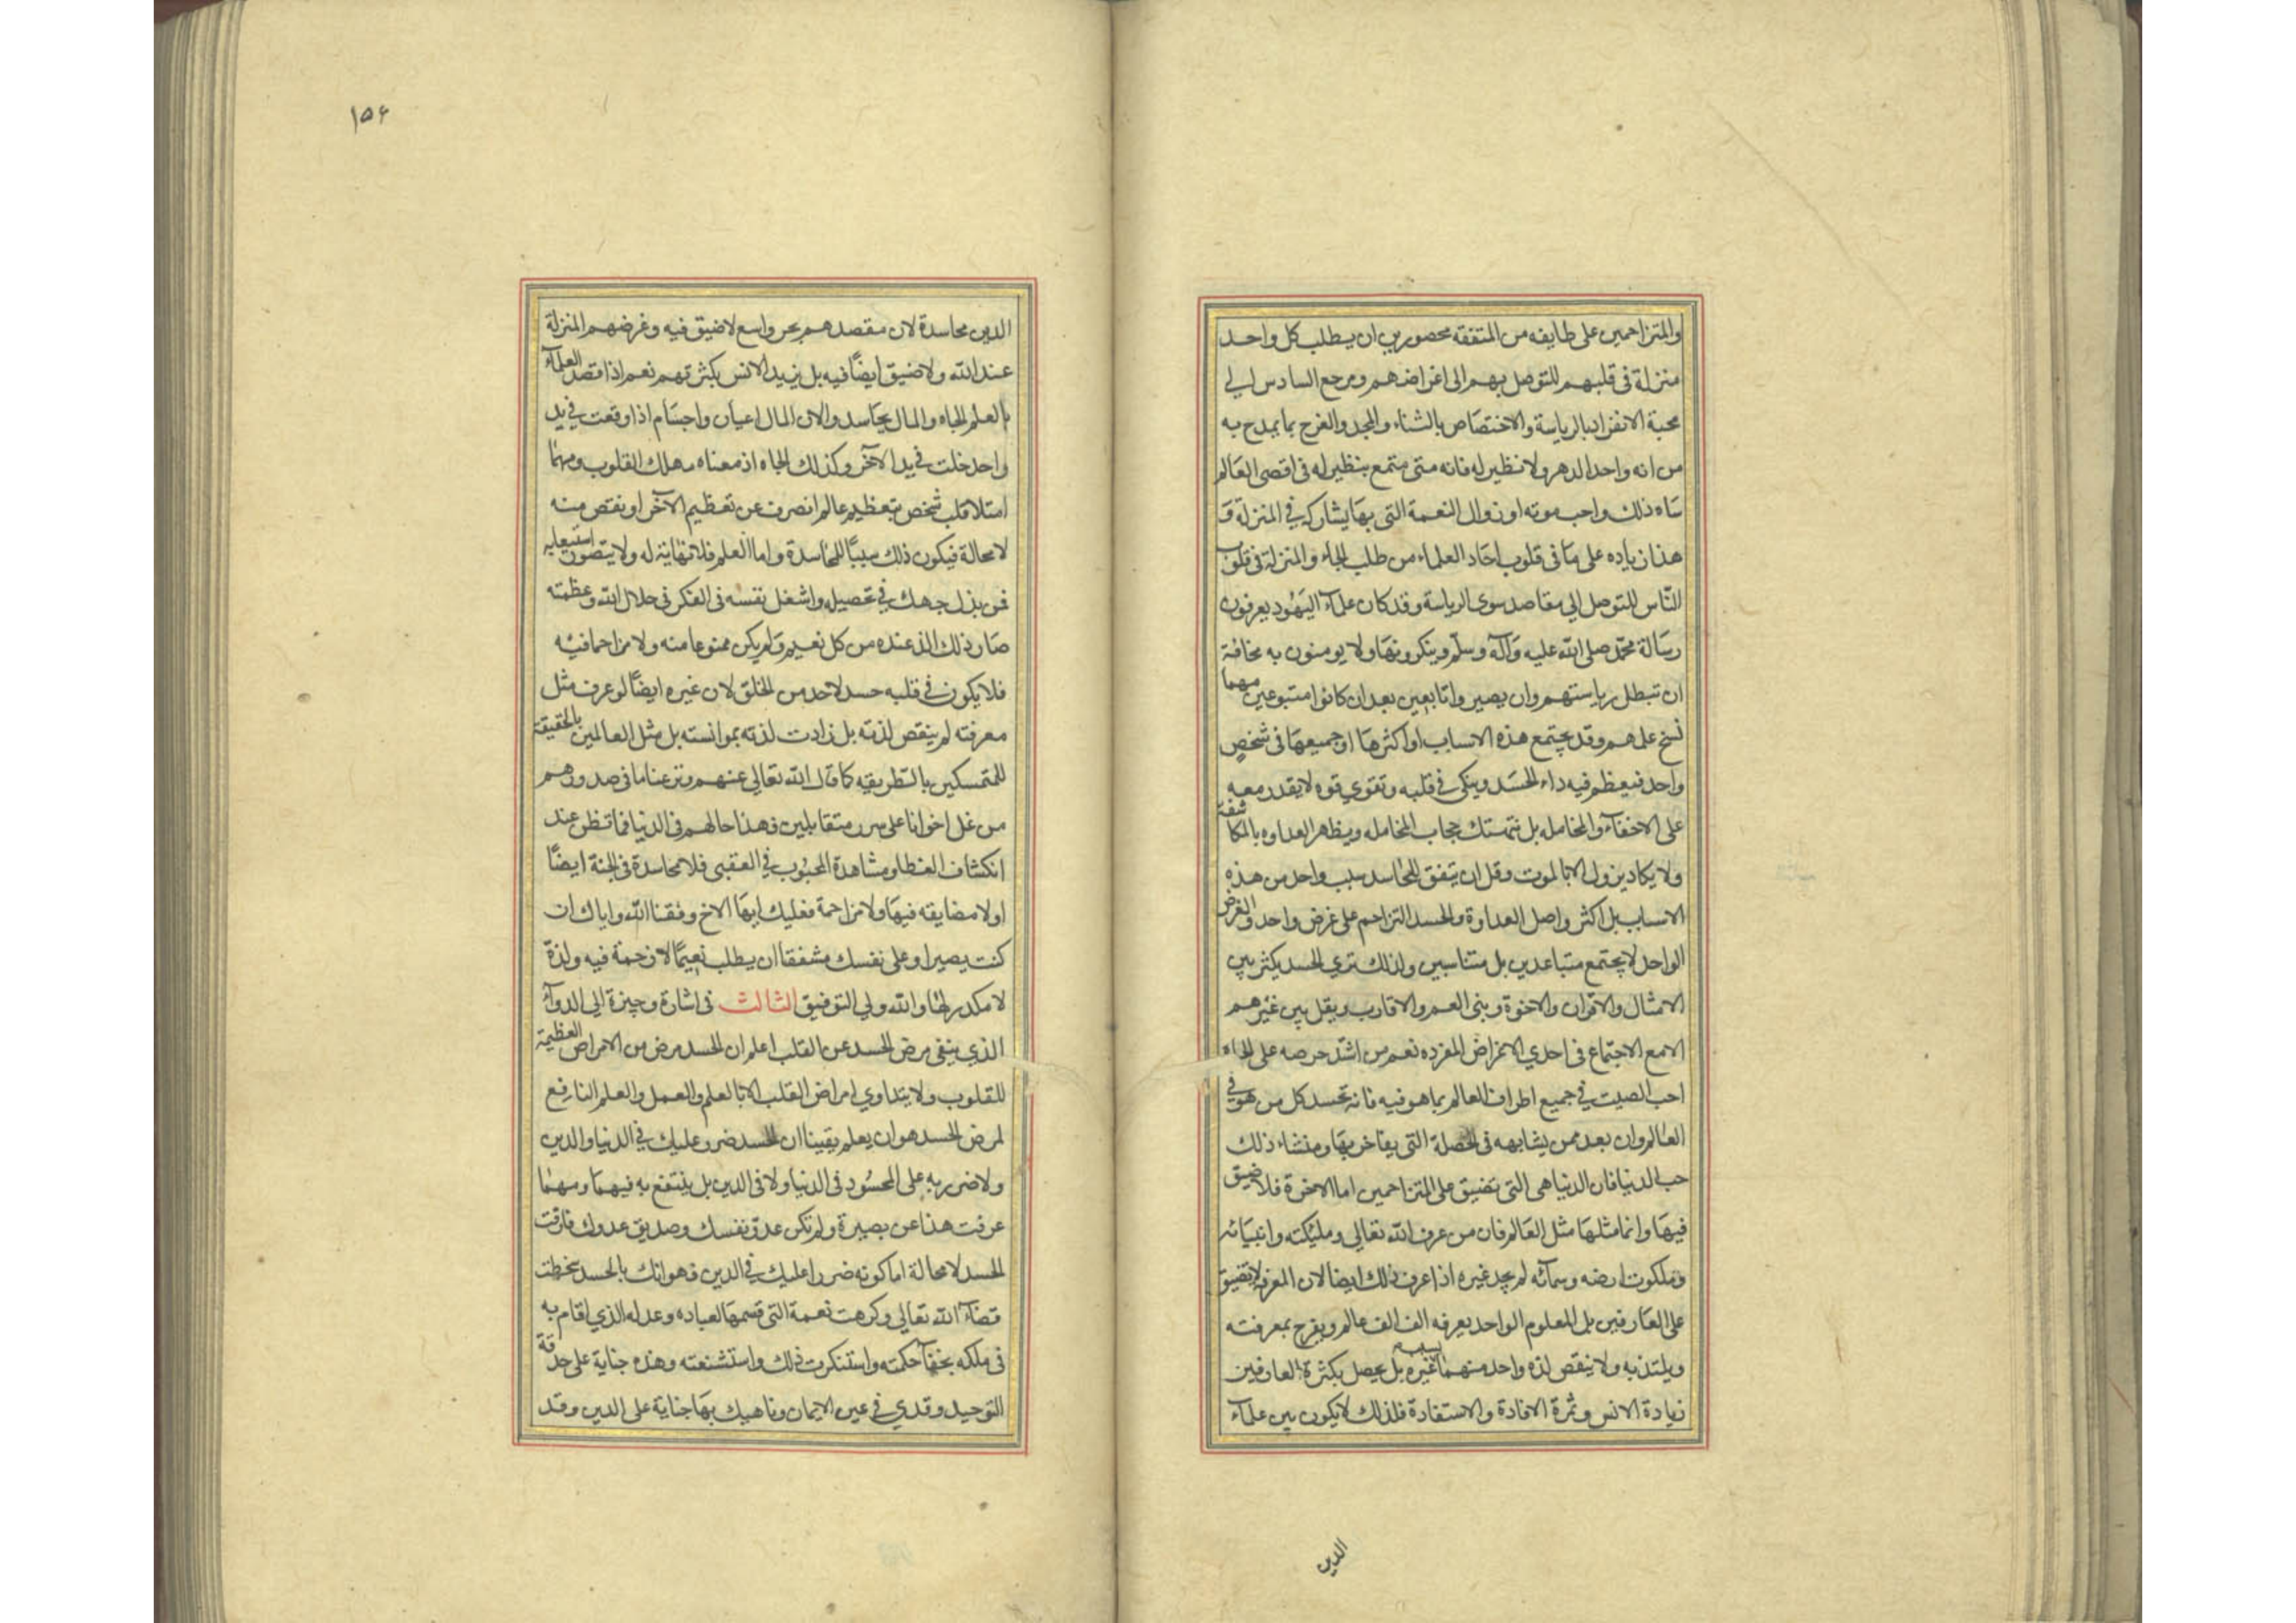 والمتزاحمين على طايفه من المتفقه محصورين ان يطلب كل واحد
منزلة فى قلبهم للتوصل بهم الى اغراضهم ومرجع السادس الى
محبة الانفراد بالرياسة والاختصاص بالثناء والمجد والفرح بما يمدح به
من انه واحد الدهر ولا نظير له فانه متى متمع بنظير له فى اقصى العالم
ساه ذلك واحب موته او زوال النعمة التى بها يشاركه في المنزلة و
هذا زياده على ما فى قلوب احاد العلماء من طلب الجاه والمنزلة فى قلوب
الناس للتوصل الى مقاصد سوى الرياسة وقد كان علمآء اليهود يعرفون
رسالة محمد صلى الله عليه وآله وسلم وينكرونها ولا يومنون به مخافة
ان تبطل رياستهم وان يصيروا تابعين بعد ان كانوا متبوعين مهما
نسخ علمهم وقد يجتمع هذه الاسباب او اكثرها او جميعها فى شخص
واحد فيعظم فيه داء الحسد وينكى في قلبه وتقوي قوه لا يقدر معه
على الاخفآء والمخامله بل نتمستك حجاب المخامله ويظهر العداوه بالمكاشفة
ولا يكاد يزول الا بالموت وقل ان يتفق للحاسد سبب واحد من هذه
الاسباب بل اكثر واصل العداوة والحسد التزاحم على غرض واحد والغرض
الواحد لا يجتمع متباعدين بل متناسبين ولذلك تري الحسد يكثر بين
الامثال والاقران والاخوة وبنى العم والاقارب ويقل بين غيرهم
الا مع الاجتماع فى احدي الاغراض المفرده نعم من اشتد حرصه على الجاه
احب الصيت في جميع اطراف العالم بما هو فيه فانه يحسد كل من هو في
العالم وان بعد ممن يشابهه فى الخصلة التى يفاخر بها ومنشاء ذلك
حب الدنيا فان الدنيا هى التى تضيق على المتزاحمين اما الاخرة فلا ضيق
فيها وانما مثلها مثل العالم فان من عرف الله تعالي ومليكته وانبيائه
وملكوت ارضه وسمآئه لم يجد غيره اذا عرف ذلك ايضا لان المعرفة لا تضيق
على العارفين بل المعلوم الواحد يعرفه الف الف عالم ويفرح بمعرفته
ويلتذ به ولا ينقص لذه واحد منهما بسبب غيره بل يحصل بكثرة العارفين
زيادة الانس وثمرة الافادة والاستفادة فلذلك لا يكون بين علمآء
الدين
١٥۶
الدين محاسدة لان مقصدهم بحر واسع لا ضيق فيه وغرضهم المنزلة
عند الله ولا ضيق ايضاً فيه بل يزيد الانس بكثرتهم نعم اذا قصد العلمآء
بالعلم الجاه والمال يحاسدوا لان المال اعيان واجسام اذا وقعت في يد
واحد خلت في يد الآخر وكذلك الجاه اذ معناه ملك القلوب ومهما
امتلا قلب شخص بتعظيم عالم انصرف عن تعظيم الآخر او نقص منه
لا محالة فيكون ذلك سبباً للمحاسدة واما العلم فلا نهاية له ولا يتصور استيعابه
فمن بذل جهده في تحصيله واشغل نفسه فى الفكر فى جلال الله وعظمته
صار ذلك الذ عنده من كل نعيم ولم يكن ممنوعا منه ولا مزاحما فيه
فلا يكون في قلبه حسد لاحد من الخلق لان غيره ايضاً لو عرف مثل
معرفته لم ينقص لذته بل زادت لذته بموانسته بل مثل العالمين بالحقيقة
للمتمسكين بالطريقه كما قال الله تعالى عنهم ونزعنا ما فى صدورهم
من غل اخوانا على سرر متقابلين فهذا حالهم فى الدنيا فما تظن عند
انكشاف الغطا ومشاهدة المحبوب في العقبى فلا محاسدة فى الجنة ايضاً
اولا مضايقه فيها ولا مزاحمة فعليك ايها الاخ وفقنا الله واياك ان
كنت بصيرا وعلى نفسك مشفقا ان يطلب نعيماً لا زحمة فيه ولذة
لا مكدر لها والله ولي التوفيق الثالث فى اشارة وجيزة الى الدوآء
الذي ينفى مرض الحسد عن القلب اعلم ان الحسد مرض من الامراض العظيمة
للقلوب ولا يتداوي امراض القلب الا بالعلم والعمل والعلم النافع
لمرض الحسد هو ان يعلم يقينا ان الحسد ضرر عليك في الدنيا والدين
ولا ضرر به على المحسود فى الدنيا ولا فى الدين بل ينتفع به فيهما ومهما
عرفت هذا عن بصيرة ولم تكن عدو نفسك وصديق عدوك فارقت
الحسد لا محالة اما كونه ضررا عليك في الدين فهو انك بالحسد سخطت
قضآء الله تعالي وكرهت نعمة التى قسمها لعباده وعدله الذي اقام به
فى ملكه بخفآ حكمته واستنكرت ذلك واستشنعته وهذه جناية على حدقة
التوحيد وقذي في عين الايمان وناهيك بها جناية على الدين وقد